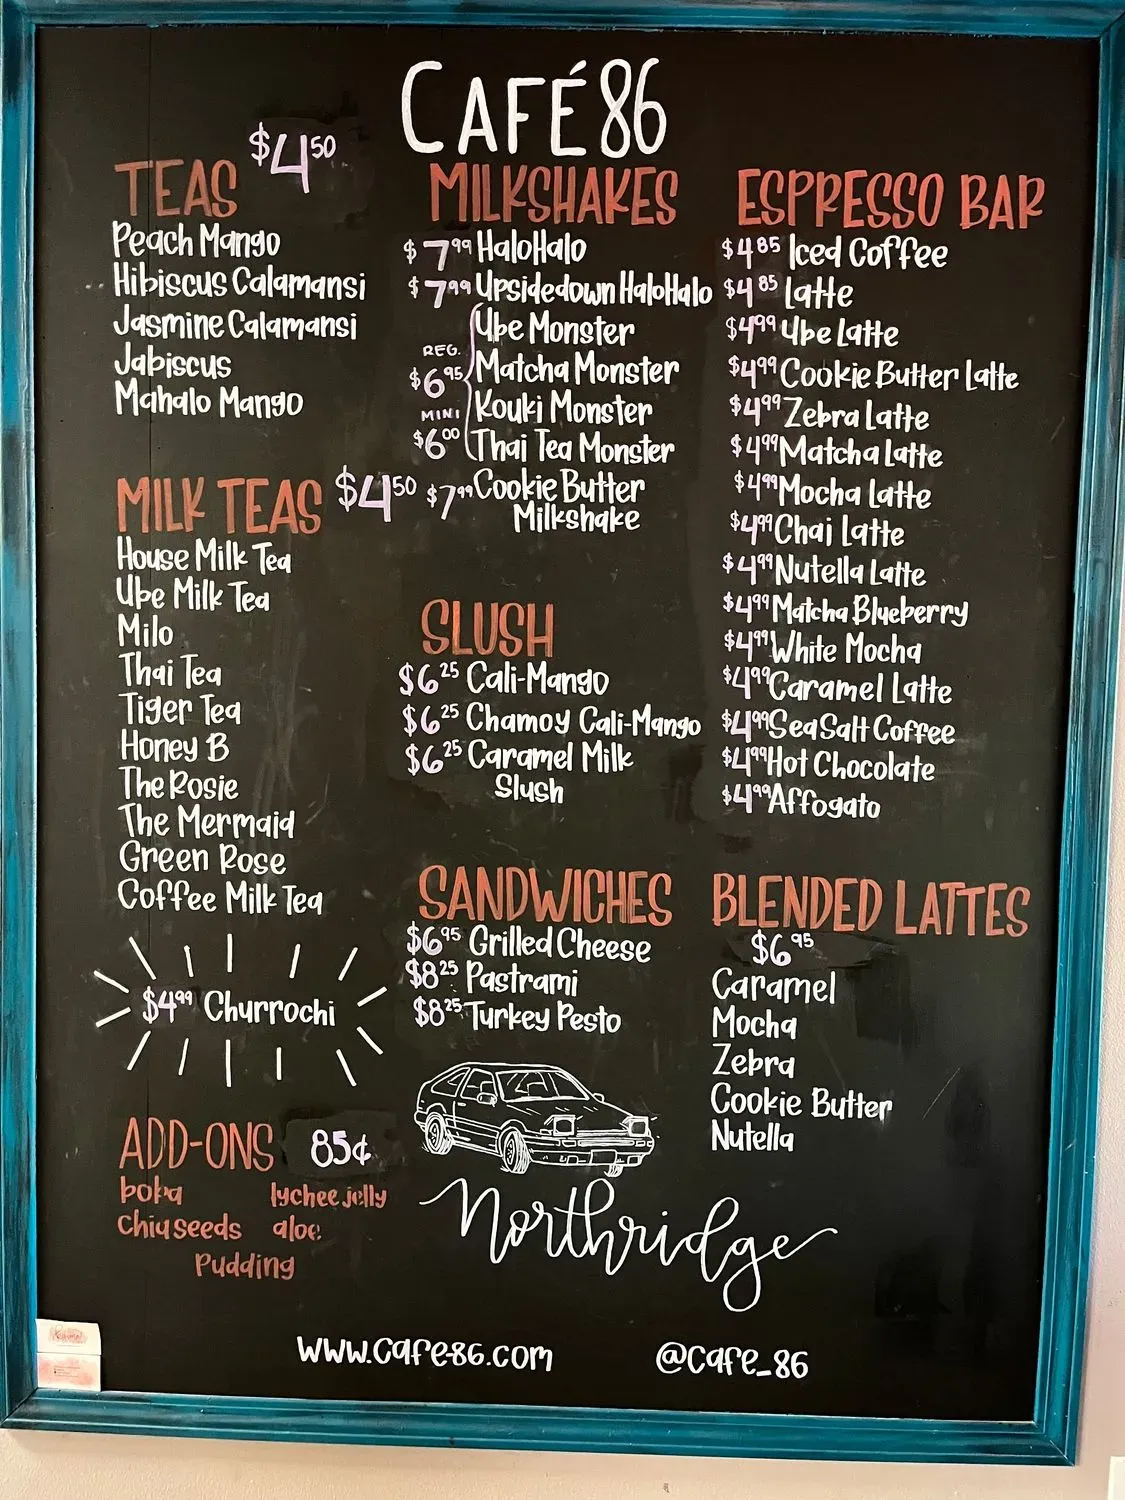 CAFÉ 86
TEAS $4.50
Peach Mango
Hibiscus Calamansi
Jasmine Calamansi
Jabiscus
Mahalo Mango
MILK TEAS $4.50
House Milk Tea
Ube Milk Tea
Milo
Thai Tea
Tiger Tea
Honey B
The Rosie
The Mermaid
Green Rose
Coffee Milk Tea
$4.99 Churrochi
ADD-ONS 85¢
boba lychee jelly
Chia seeds aloe
Pudding
MILKSHAKES
$7.99 HaloHalo
$7.99 Upsidedown HaloHalo
REG. $6.95
MINI $6.00
Ube Monster
Matcha Monster
Kouki Monster
Thai Tea Monster
$7.99 Cookie Butter
Milkshake
SLUSH
$6.25 Cali-Mango
$6.25 Chamoy Cali-Mango
$6.25 Caramel Milk
Slush
SANDWICHES
$6.95 Grilled Cheese
$8.25 Pastrami
$8.25 Turkey Pesto
ESPRESSO BAR
$4.85 Iced Coffee
$4.85 Latte
$4.99 Ube Latte
$4.99 Cookie Butter Latte
$4.99 Zebra Latte
$4.99 Matcha Latte
$4.99 Mocha Latte
$4.99 Chai Latte
$4.99 Nutella Latte
$4.99 Matcha Blueberry
$4.99 White Mocha
$4.99 Caramel Latte
$4.99 Sea Salt Coffee
$4.99 Hot Chocolate
$4.99 Affogato
BLENDED LATTES
$6.95
Caramel
Mocha
Zebra
Cookie Butter
Nutella
Northridge
www.cafe-86.com
@cafe_86